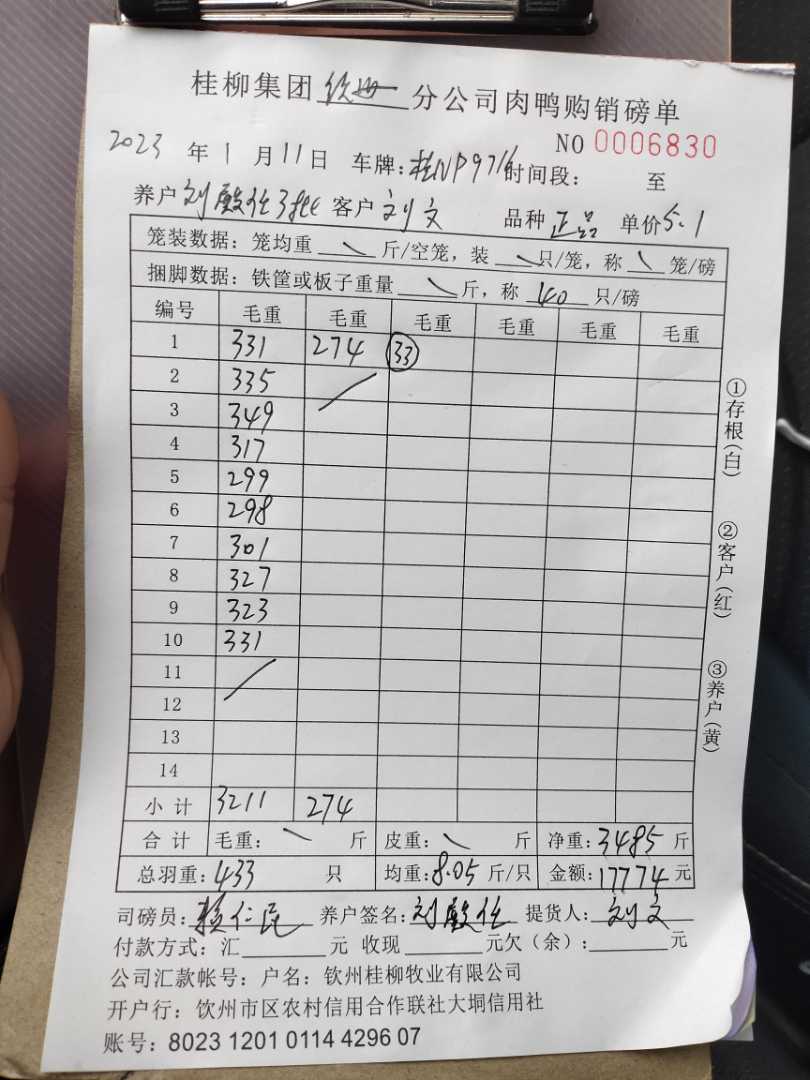 桂柳集团 钦州 分公司肉鸭购销磅单
NO 0006830
2023 年 1 月 11 日 车牌: 桂NP9716 时间段: 至
养户 刘 任 客户 刘文 品种 正品 单价 5.1
笼装数据: 笼均重 \ 斤/空笼, 装 \ 只/笼, 称 \ 笼/磅
捆脚数据: 铁筐或板子重量 \ 斤, 称 40 只/磅
编号 毛重 毛重 毛重 毛重 毛重 毛重
1 331 274 33
2 335 /
3 349
4 317
5 299
6 298
7 301
8 327
9 323
10 331
11 /
12
13
14
小计 3211 274
合计 毛重: \ 斤 皮重: \ 斤 净重: 3485 斤
总羽重: 433 只 均重: 8.05 斤/只 金额: 17774 元
司磅员: 仁 养户签名: 刘 任 提货人: 刘文
付款方式: 汇 元 收现 元欠(余): 元
公司汇款帐号: 户名: 钦州桂柳牧业有限公司
开户行: 钦州市区农村信用合作联社大垌信用社
账号: 8023 1201 0114 4296 07
①存根(白)
②客户(红)
③养户(黄)